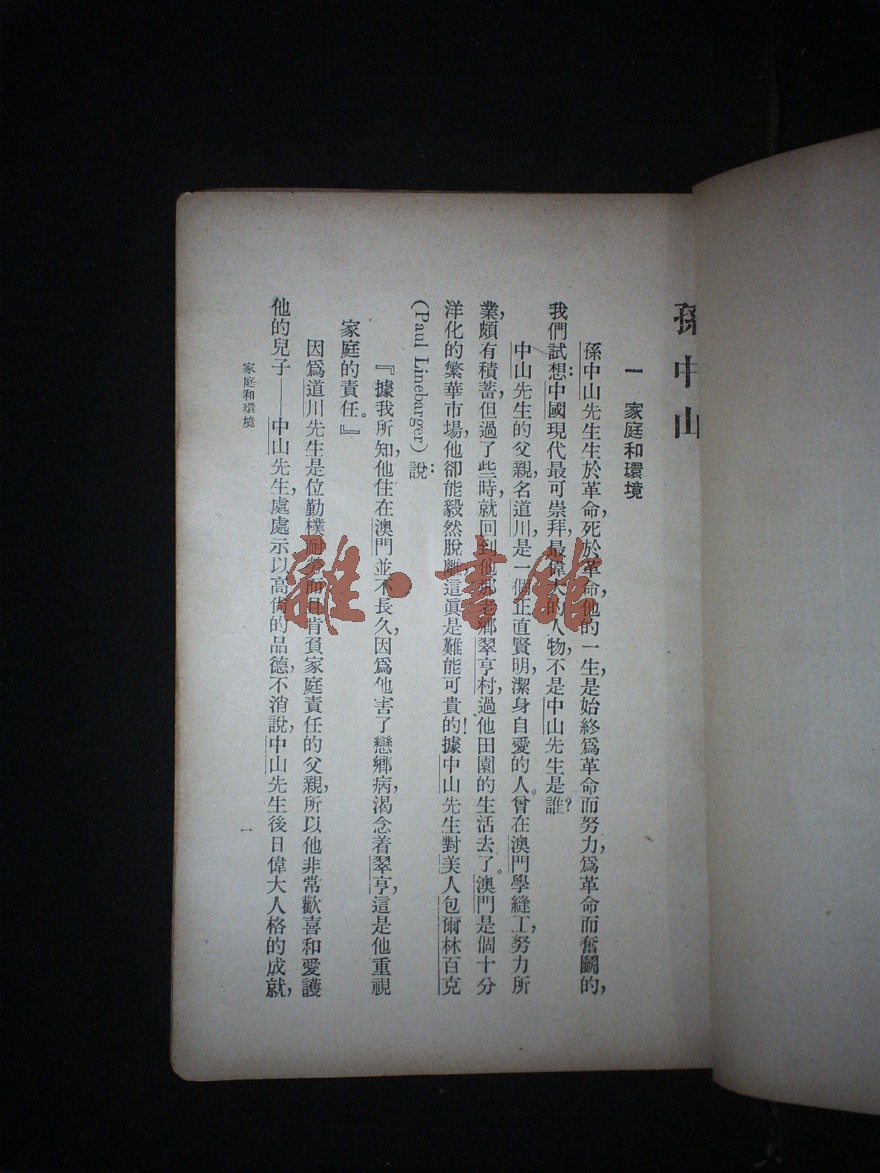 孫中山
一 家庭和環境
孫中山先生生於革命，死於革命，他的一生，是始終爲革命而努力，爲革命而奮鬭的，
我們試想：中國現代最可崇拜，最偉大的人物，不是中山先生是誰？
中山先生的父親，名道川，是一個正直賢明，潔身自愛的人。曾在澳門學縫工，努力所
業，頗有積蓄，但過了些時，就回到他那老鄉翠亨村，過他田園的生活去了。澳門是個十分
洋化的繁華市場，他卻能毅然脫離，這眞是難能可貴的！據中山先生對美人包爾林百克
(Paul Linebarger)說：
『據我所知，他住在澳門並不長久，因爲他害了戀鄉病，渴念着翠亨，這是他重視
家庭的責任。』
因爲道川先生是位勤樸耐勞而且肯負家庭責任的父親，所以他非常歡喜和愛護
他的兒子——中山先生，處處示以高尙的品德，不消說，中山先生後日偉大人格的成就，
家庭和環境
一
雜·書館